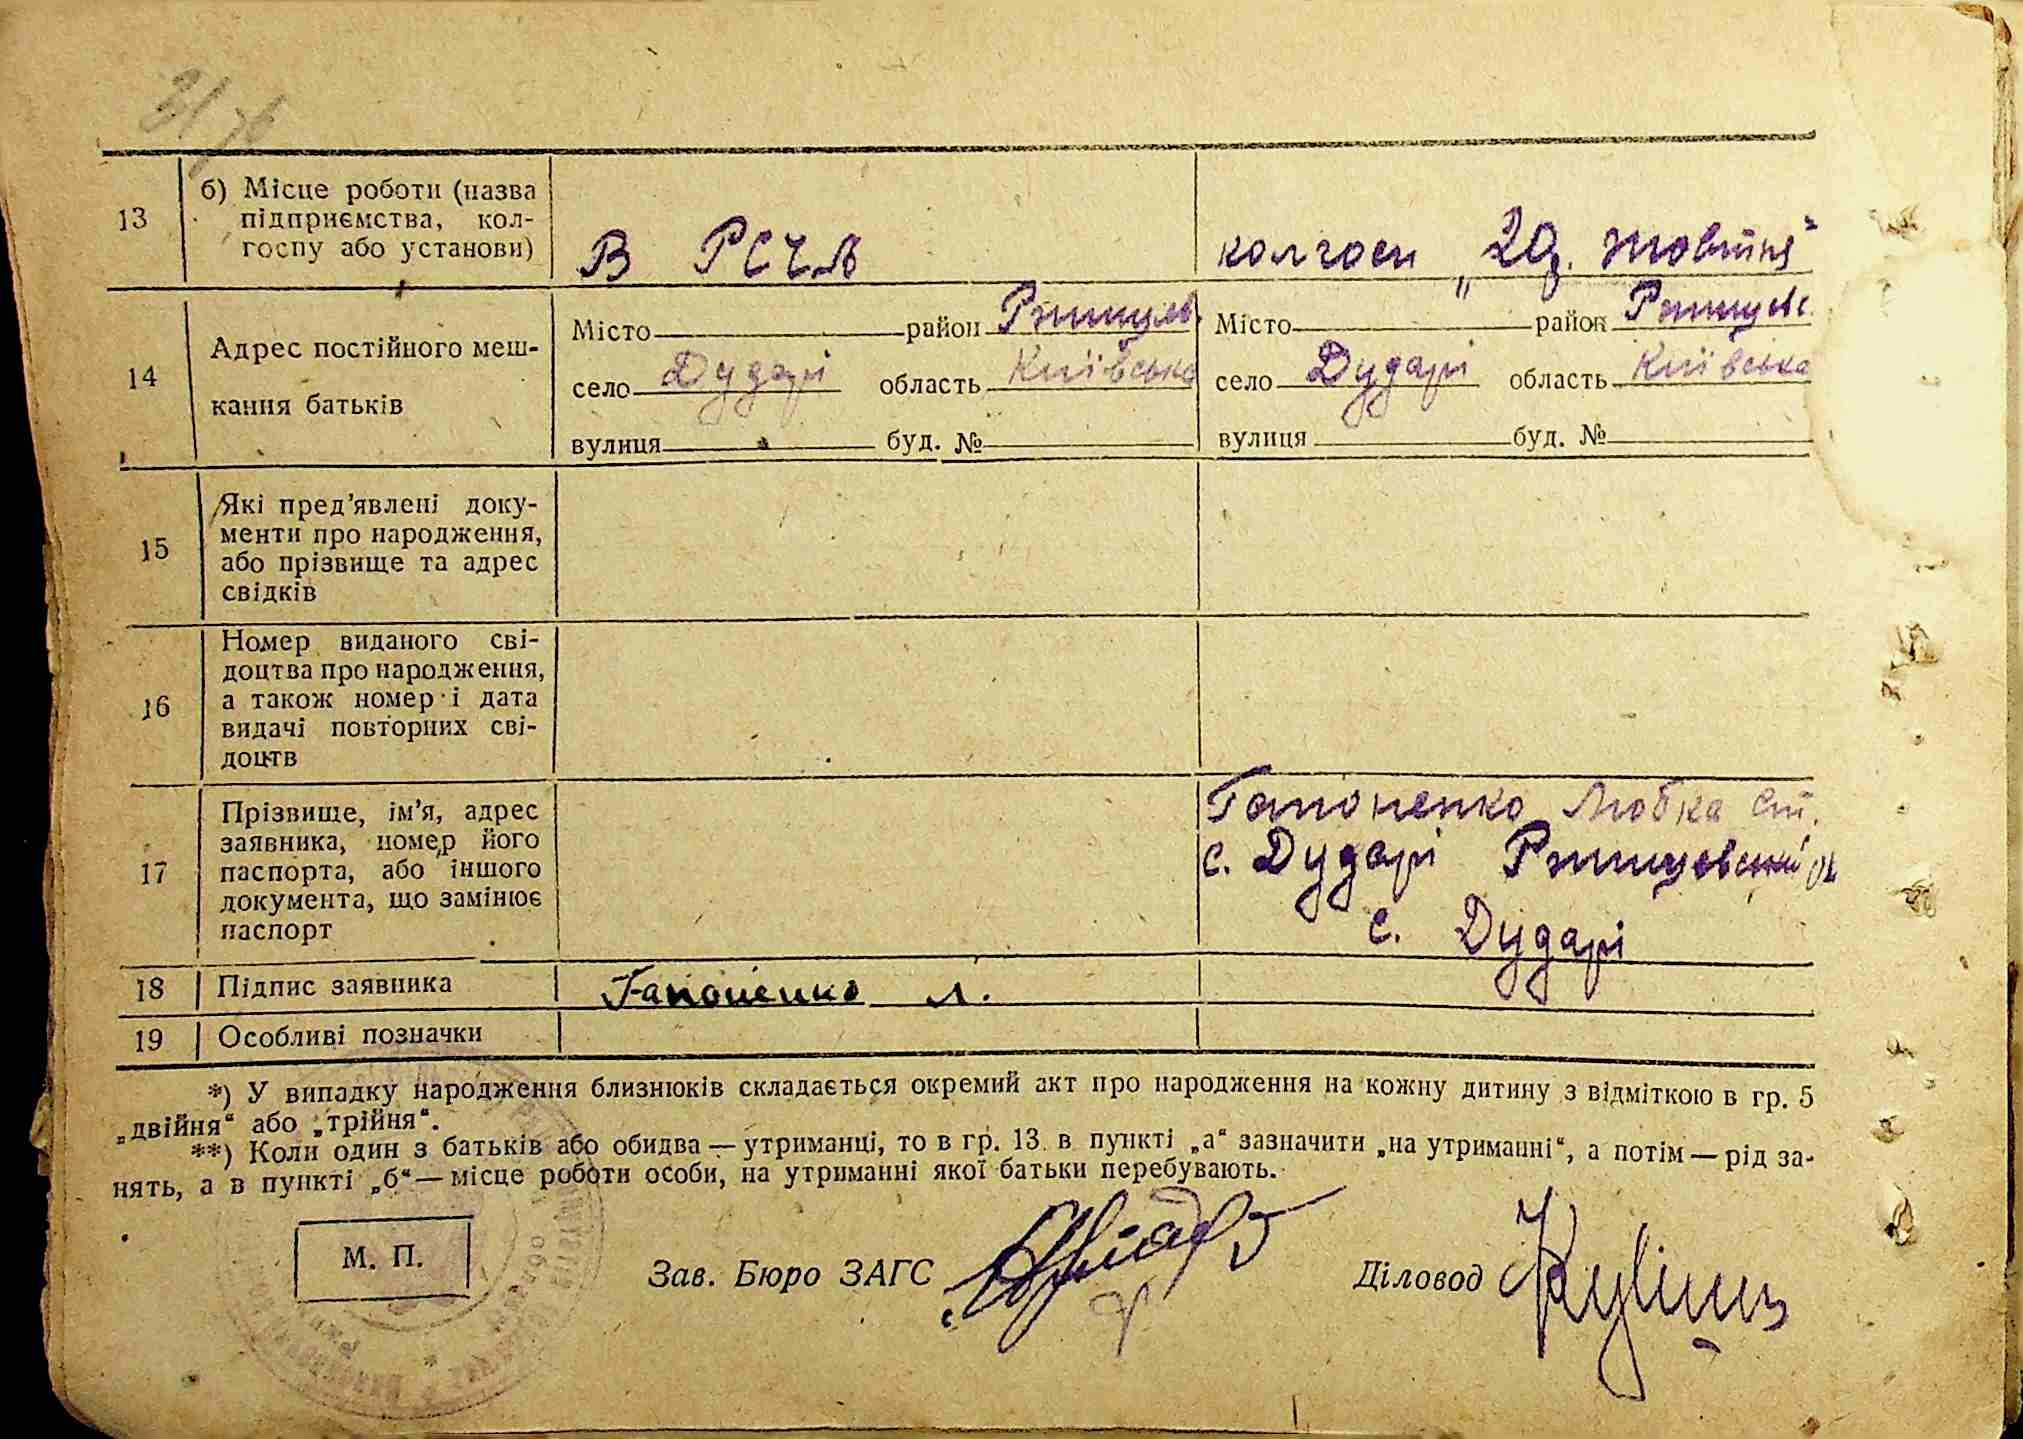 13
б) Місце роботи (назва
підприємства, кол-
госпу або установи)
В РСЧА
колгосп „20р. жовтня"
14
Адрес постійного меш-
кання батьків
Місто район Ржищев.
село Дударі область Київська
вулиця буд. №
Місто район Ржищевс.
село Дударі область Київська
вулиця буд. №
15
Які пред’явлені доку-
менти про народження,
або прізвище та адрес
свідків
16
Номер виданого сві-
доцтва про народження,
а також номер і дата
видачі повторних сві-
доцтв
17
Прізвище, ім’я, адрес
заявника, номер його
паспорта, або іншого
документа, що замінює
паспорт
Гапоненко Любка Ст.
с. Дударі Ржищевський
с. Дударі
18
Підпис заявника
Гапоненко Л.
19
Особливі позначки
*) У випадку народження близнюків складається окремий акт про народження на кожну дитину з відміткою в гр. 5
„двійня“ або „трійня“.
**) Коли один з батьків або обидва — утриманці, то в гр. 13 в пункті „а“ зазначити „на утриманні“, а потім — рід за-
нять, а в пункті „б“ — місце роботи особи, на утриманні якої батьки перебувають.
М. П.
Зав. Бюро ЗАГС
Діловод